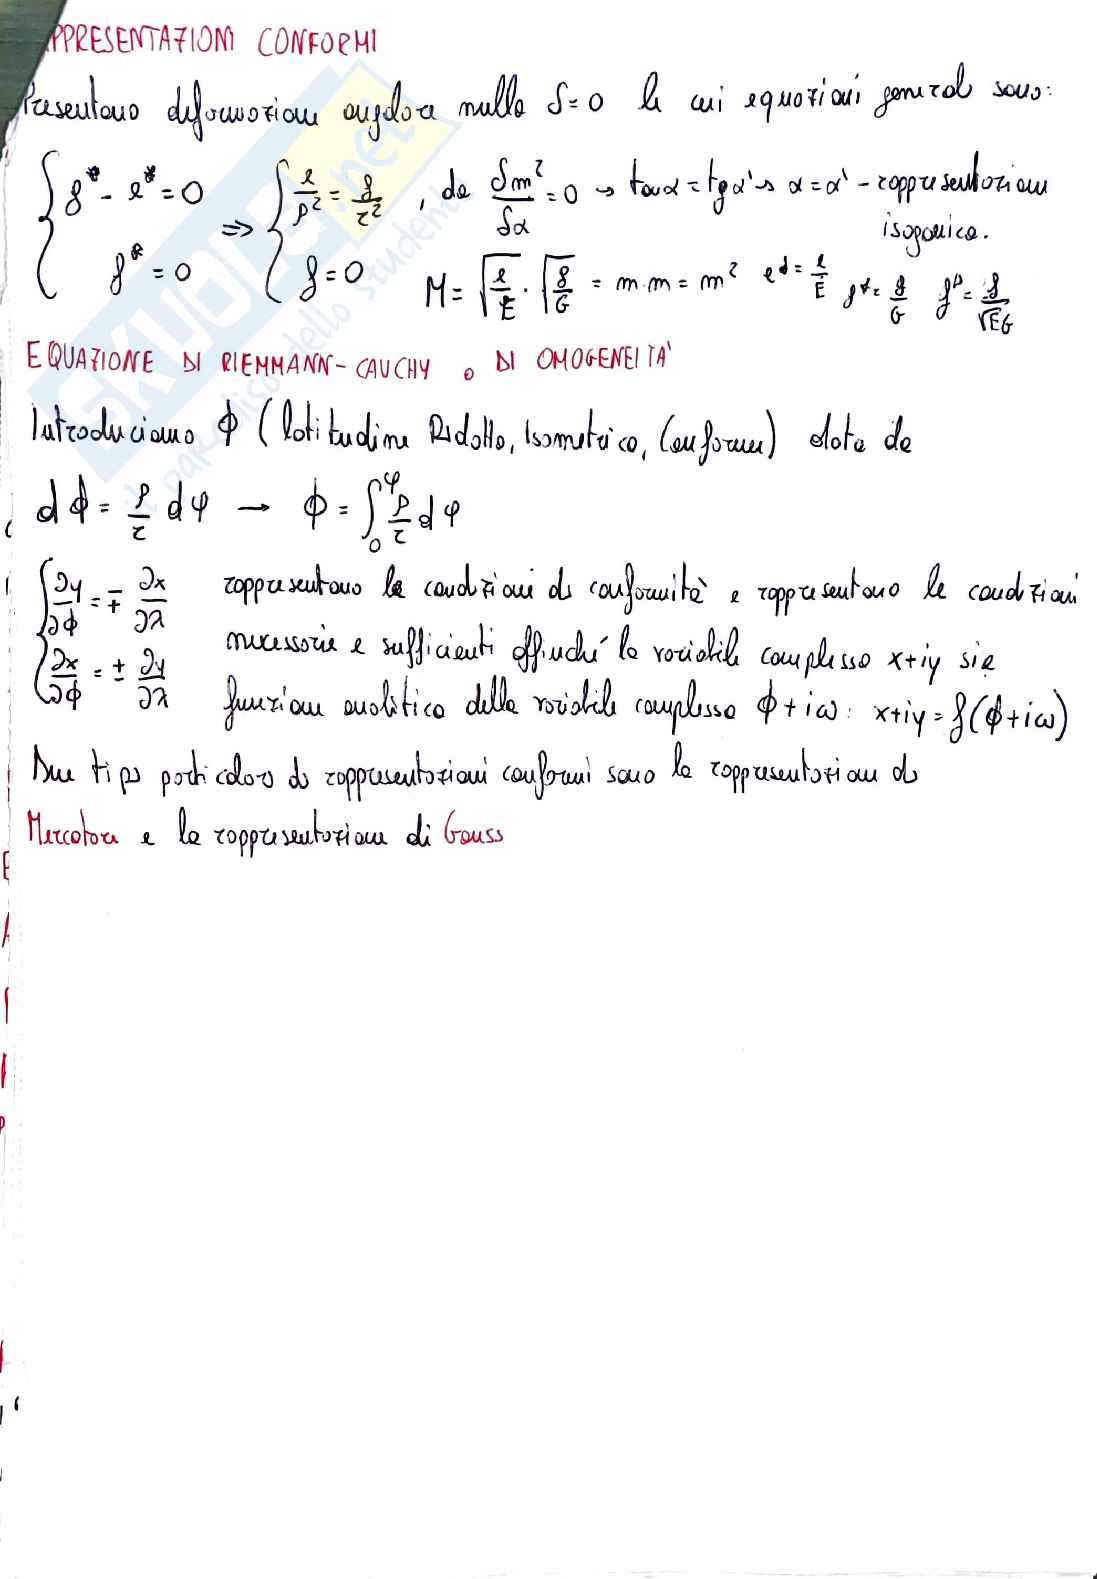 RAPPRESENTAZIONI CONFORMI
Presentano deformazione angolare nulla δ=0 le cui equazioni generali sono:
{ g* - e* = 0 ; f* = 0 ⇒ { e/ρ² = g/r² ; f = 0 , da δm²/δα = 0 → tanα = tgα' → α = α' - rappresentazione
isogonica.
M = √(e/E) · √(g/G) = m·m = m² e* = e/E g* = g/G f* = f/√EG
EQUAZIONE DI RIEMMANN-CAUCHY o DI OMOGENEITA'
Introduciamo ϕ (latitudine Ridotta, Isometrica, Conforme) data da
dϕ = ρ/r dφ → ϕ = ∫₀^φ ρ/r dφ
{ ∂y/∂ϕ = ∓ ∂x/∂λ rappresentano le condizioni di conformità e rappresentano le condizioni
necessarie e sufficienti affinché la variabile complessa x+iy sia
∂x/∂ϕ = ± ∂y/∂λ funzione analitica della variabile complessa ϕ+iω: x+iy = f(ϕ+iω)
Due tipi particolari di rappresentazioni conformi sono la rappresentazione di
Mercatore e la rappresentazione di Gauss
SKUOLA.net
il paradiso dello studente